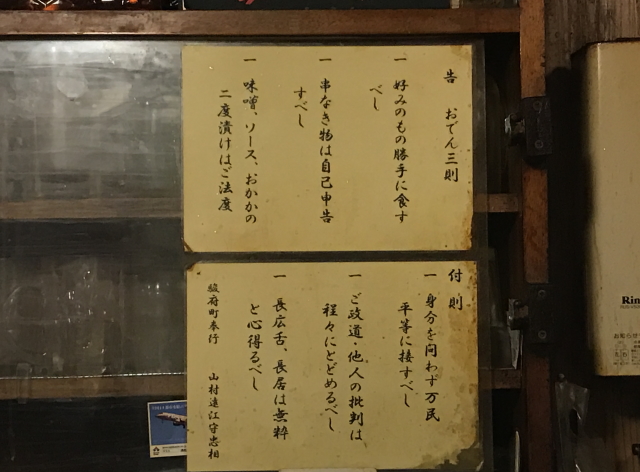 告 おでん三則
一 好みのもの勝手に食す
べし
一 串なき物は自己申告
すべし
一 味噌、ソース、おかかの
二度漬けはご法度
付則
一 身分を問わず万民
平等に接すべし
一 ご政道・他人の批判は
程々にとどめるべし
一 長広舌、長居は無粋
と心得るべし
駿府町奉行 山村遠江守忠相
Rin
お知らせ